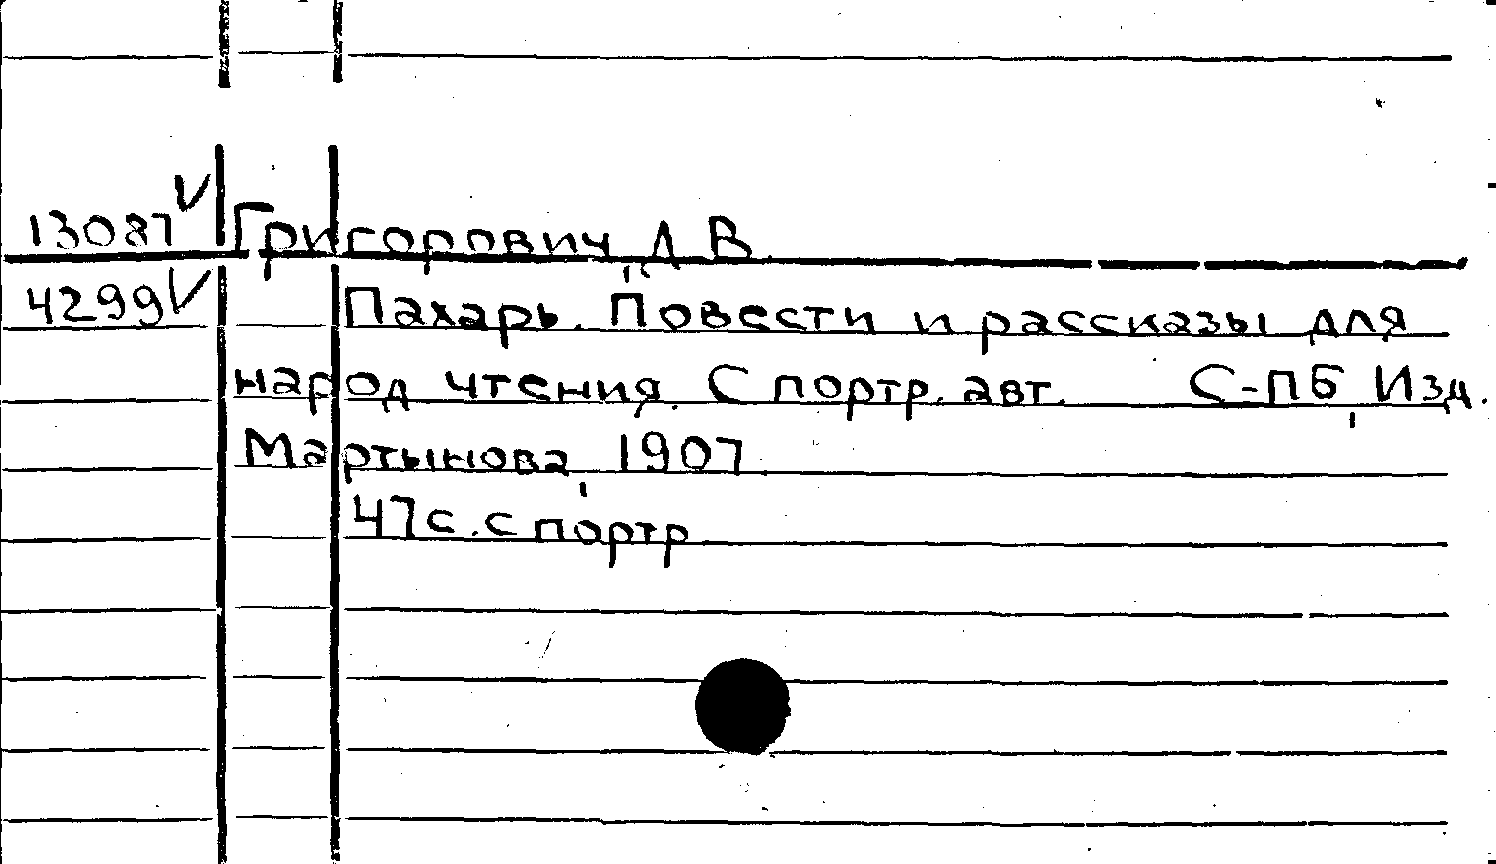 13087 V Григорович, Д В.
4299 V Пахарь. Повести и рассказы для
народ чтения. С портр. авт. С-ПБ, Изд.
Мартынова, 1907.
47 с. с портр